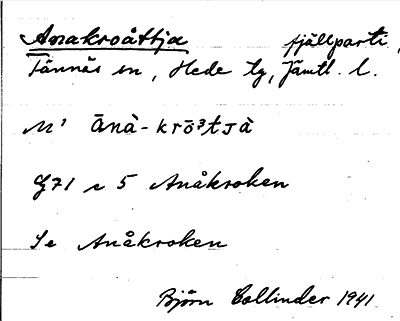 Anakroåttja fjällparti,
Tännäs sn, Hede tg, Jämtl. l.
M¹ ānà-krō³tjà
G71 s 5 Anåkroken
Se Anåkroken
Björn Collinder 1941